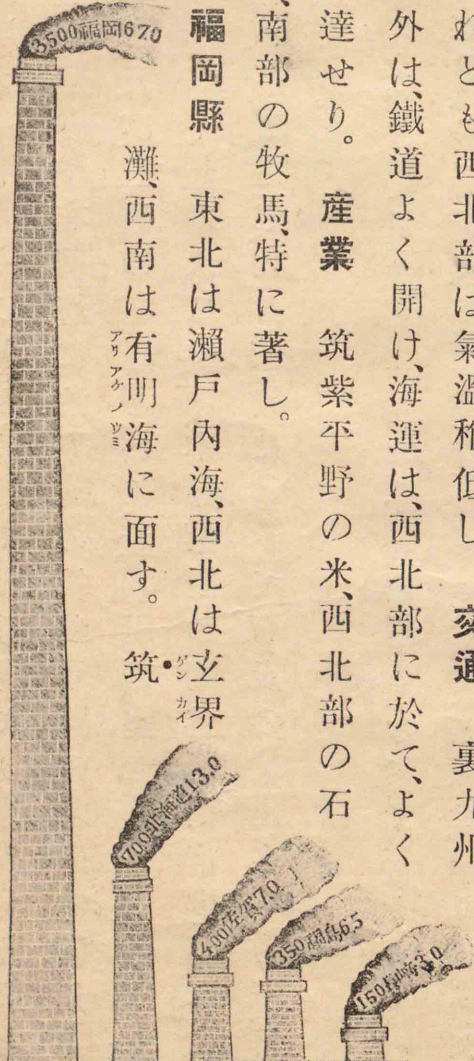 れども西北部は氣溫稍低し。 交通 裏九州
外は、鐵道よく開け、海運は、西北部に於て、よく
達せり。 産業 筑紫平野の米、西北部の石
、南部の牧馬、特に著し。
福岡縣 東北は瀨戶內海、西北は玄界
ゲンカイ
灘、西南は有明海に面す。 筑
アリアケノウミ
3500福岡67.0
700北海道13.0
400佐賀7.0
350福島6.5
150 3.0